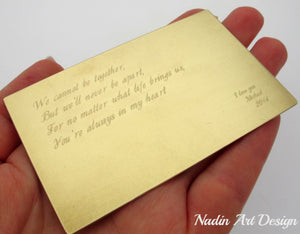 We cannot be together,
But we'll never be apart,
For no matter what life brings us,
You're always in my heart
I love you
2014
Nadin Art Design